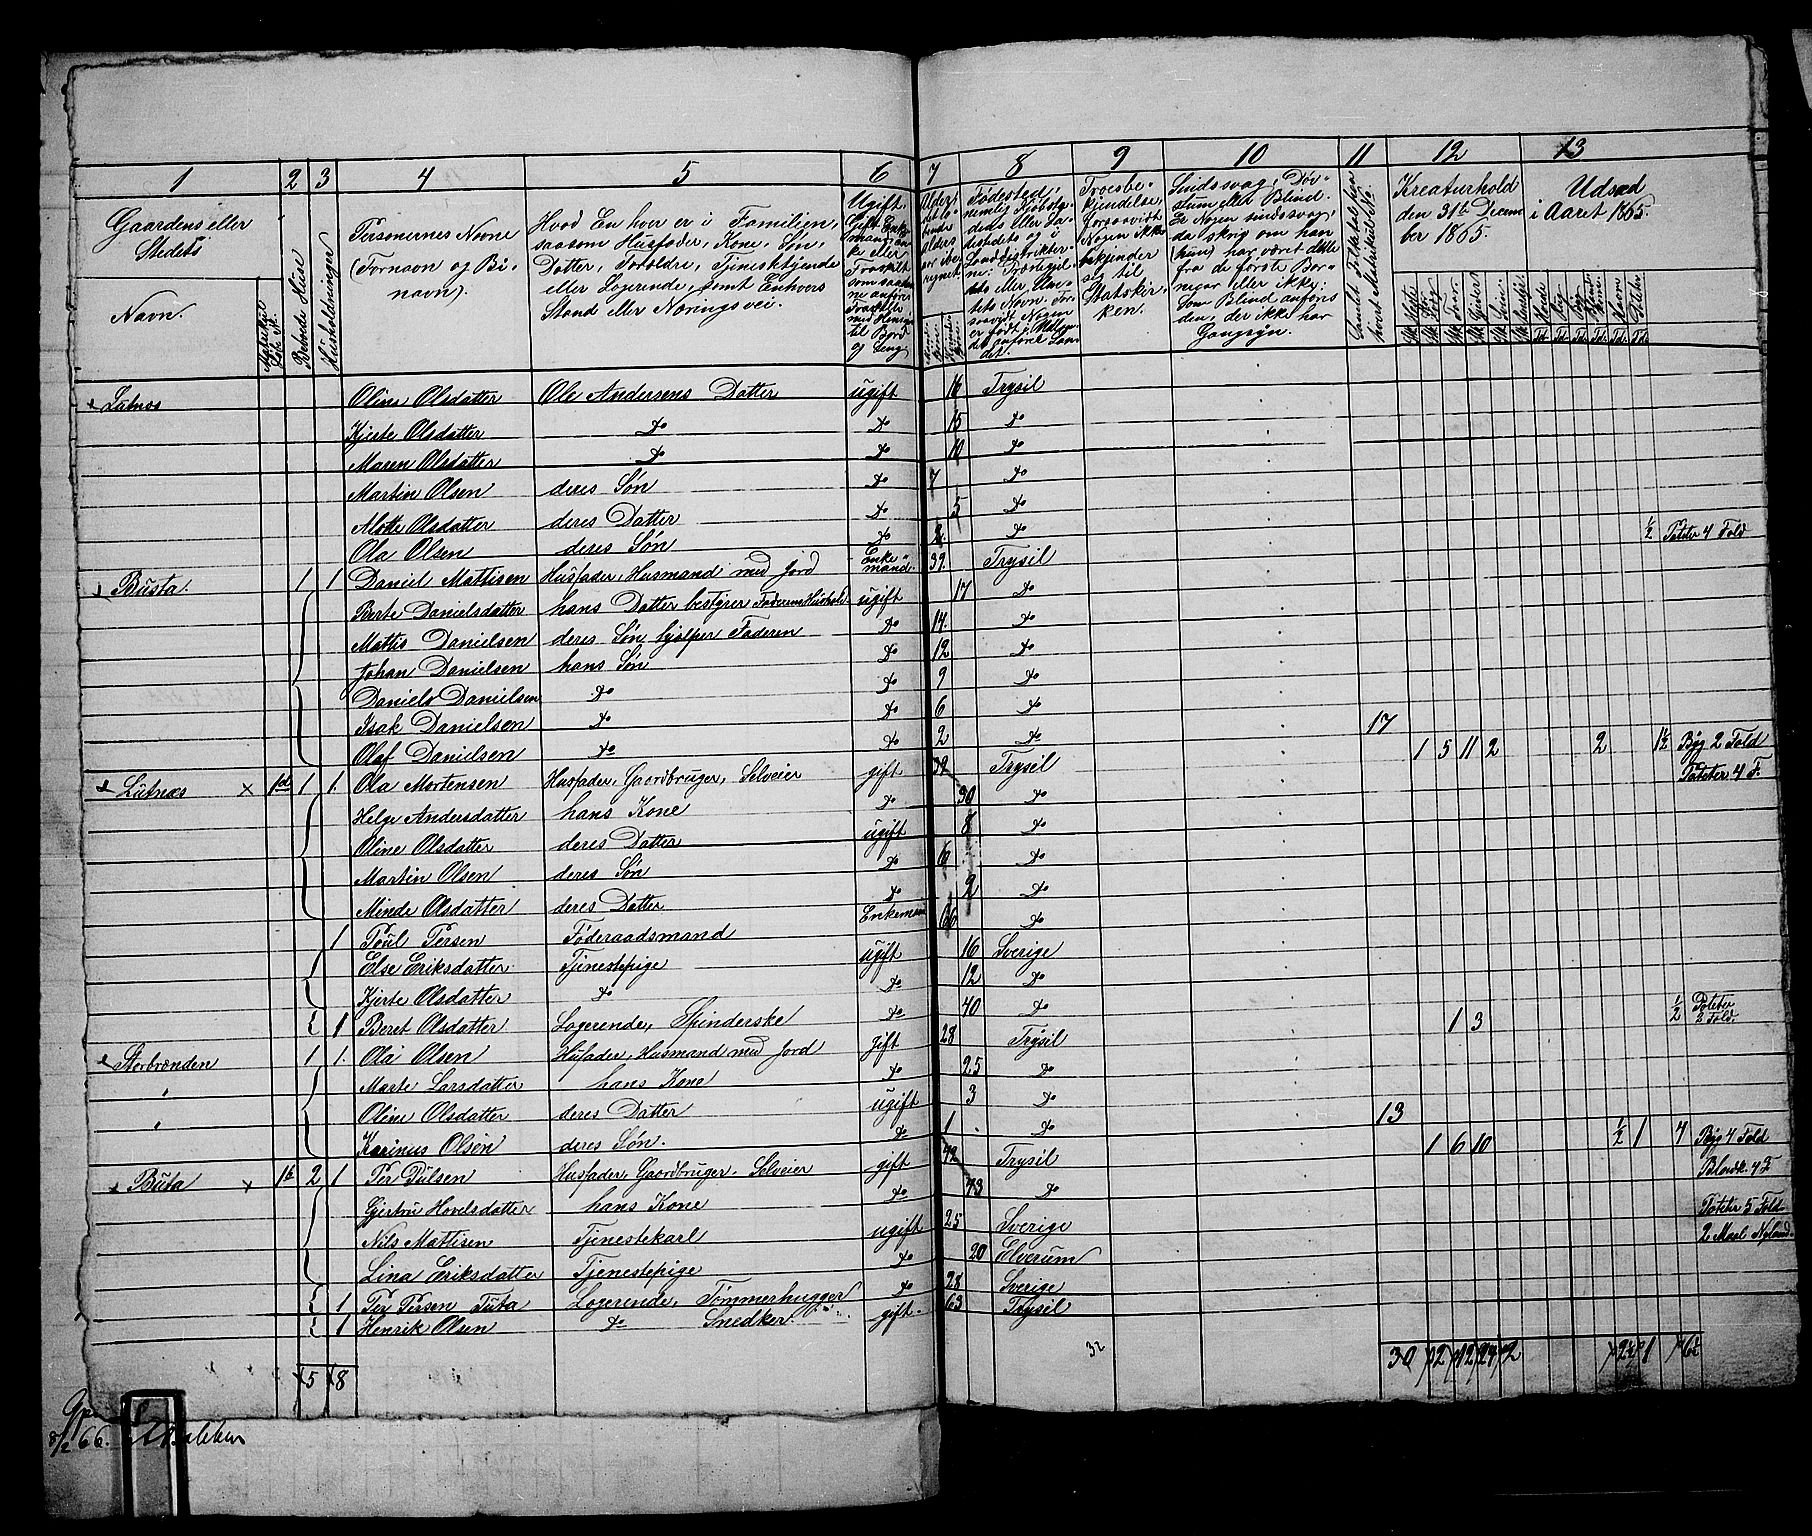 1 2 3 4 5 6 7 8 9 10 11 12 13
Gaardens eller Stedets
Navn.
Matrikul Løbe №.
Beboede Huse
Husholdninger
Personernes Navne (Fornavn og Binavn).
Hvad En hver er i Familien, saasom Husfader, Kone, Søn, Datter, Forældre, Tjenesktjende eller Logerende, samt Enhvers Stand eller Næringsvei.
Ugift, Gift, Enkemand,
Fødested,
Troesbekjendelse, forsaavidt Nogen ikke bekjender sig til Statskirken.
Sindssvag, Døvstum eller Blind. Er Nogen sindssvag, da skriv om han (hun) har været dette fra de første Barneaar eller ikke; som Blind anføres den, der ikke har Gangsyn.
Kreaturhold den 31te December 1865.
Udsæd i Aaret 1865.
Lutnæs Oline Olsdatter Ole Andersens Datter ugift 16 Trysil
Kjerte Olsdatter Do Do 15 Do
Maren Olsdatter Do Do 10 Do
Martin Olsen deres Søn Do 7 Do
Alotte Olsdatter deres Datter Do 5 Do
Ola Olsen deres Søn Do 2. Do
Busta. 1 1 Daniel Mattisen Husfader, Husmand med Jord Enkemand. 39. Trysil ½ Poteter 4 Fold
Berte Danielsdatter hans Datter bestyrer Faderens Hushold. ugift 17 Do
Mattis Danielsen deres Søn, hjælper Faderen Do 14. Do
Johan Danielsen hans Søn Do 12 Do
Daniels Danielsen Do Do 9 Do
Isak Danielsen Do Do 6 Do
Olaf Danielsen Do Do 2 Do
Lutnæs x 1 1. Ola Mortensen Husfader, Gaardbruger, Selveier gift 32 Trysil 17 1 5 11 2 2 1½ Byg 2 Fold
Poteter 4 F.
Helge Andersdatter hans Kone Do 30 Do
Oline Olsdatter deres Datter ugift 8 Do
Martin Olsen deres Søn Do 6 Do
Minde Olsdatter deres Datter Do 2 Do
1 Poul Persen Føderaadsmand Enkemand 66 Do
Else Eriksdatter Tjenestepige ugift 16 Sverige
Kjerte Olsdatter Do Do 12 Do
1 Beret Olsdatter Logerende, Spinderske Do 40 Do
Storbrænden 1 1. Ola Olsen Husfader, Husmand med Jord gift 28 Trysil 1 3 ½ Poteter 2 Fold.
Marte Larsdatter hans Kone Do 25 Do
Oline Olsdatter deres Datter ugift 3 Do
Karinus Olsen deres Søn. Do 1 Do
Buta x 2 1 Per Pulsen Husfader, Gaardbruger, Selveier gift 42 Trysil 13 1 6 10 ½ 1 4 Byg 4 Fold
Gjertru Hovelsdatter hans Kone Do 43 Do
Nils Mattisen Tjenestekarl ugift 25 Sverige Poteter 5 Fold
2 Maal Nyland.
Lina Eriksdatter Tjenestepige Do 20 Elverum
1 Per Persen Tuta Logerende, Tømmerhugger Do 28 Sverige
1 Henrik Olsen Do Snedker. gift. 63 Trysil
5 8
30 2 12 24 2 2½ 1 6½
32
8/2 66.